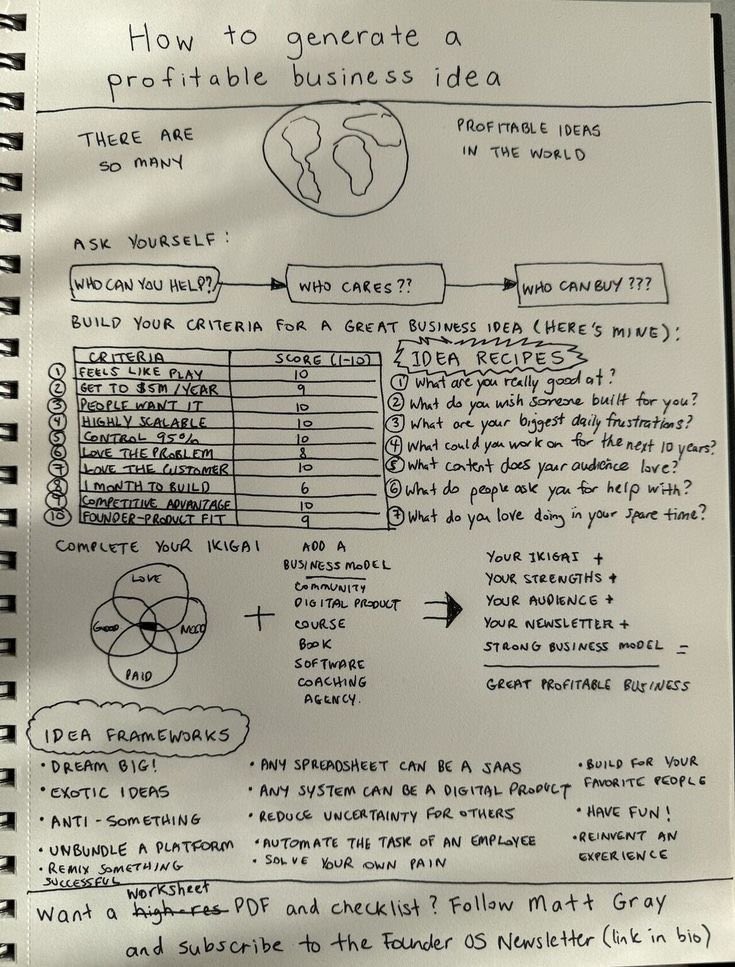 How to generate a
profitable business idea
THERE ARE
SO MANY
PROFITABLE IDEAS
IN THE WORLD
ASK YOURSELF:
WHO CAN YOU HELP?
WHO CARES??
WHO CAN BUY???
BUILD YOUR CRITERIA FOR A GREAT BUSINESS IDEA (HERE'S MINE):
CRITERIA SCORE (1-10)
1 FEELS LIKE PLAY 10
2 GET TO $5M/YEAR 9
3 PEOPLE WANT IT 10
4 HIGHLY SCALABLE 10
5 CONTROL 95% 10
6 LOVE THE PROBLEM 8
7 LOVE THE CUSTOMER 10
8 1 MONTH TO BUILD 6
9 COMPETITIVE ADVANTAGE 10
10 FOUNDER-PRODUCT FIT 9
IDEA RECIPES
1 What are you really good at?
2 What do you wish someone built for you?
3 What are your biggest daily frustrations?
4 What could you work on for the next 10 years?
5 What content does your audience love?
6 What do people ask you for help with?
7 What do you love doing in your spare time?
COMPLETE YOUR IKIGAI
LOVE
GOOD
NEED
PAID
+
ADD A
BUSINESS MODEL
COMMUNITY
DIGITAL PRODUCT
COURSE
BOOK
SOFTWARE
COACHING
AGENCY.
YOUR IKIGAI +
YOUR STRENGTHS +
YOUR AUDIENCE +
YOUR NEWSLETTER +
STRONG BUSINESS MODEL =
GREAT PROFITABLE BUSINESS
IDEA FRAMEWORKS
• DREAM BIG!
• EXOTIC IDEAS
• ANTI-SOMETHING
• UNBUNDLE A PLATFORM
• REMIX SOMETHING
SUCCESSFUL
• ANY SPREADSHEET CAN BE A SAAS
• ANY SYSTEM CAN BE A DIGITAL PRODUCT
• REDUCE UNCERTAINTY FOR OTHERS
• AUTOMATE THE TASK OF AN EMPLOYEE
• SOLVE YOUR OWN PAIN
• BUILD FOR YOUR
FAVORITE PEOPLE
• HAVE FUN!
• REINVENT AN
EXPERIENCE
worksheet
Want a high-res PDF and checklist? Follow Matt Gray
and subscribe to the Founder OS Newsletter (link in bio)